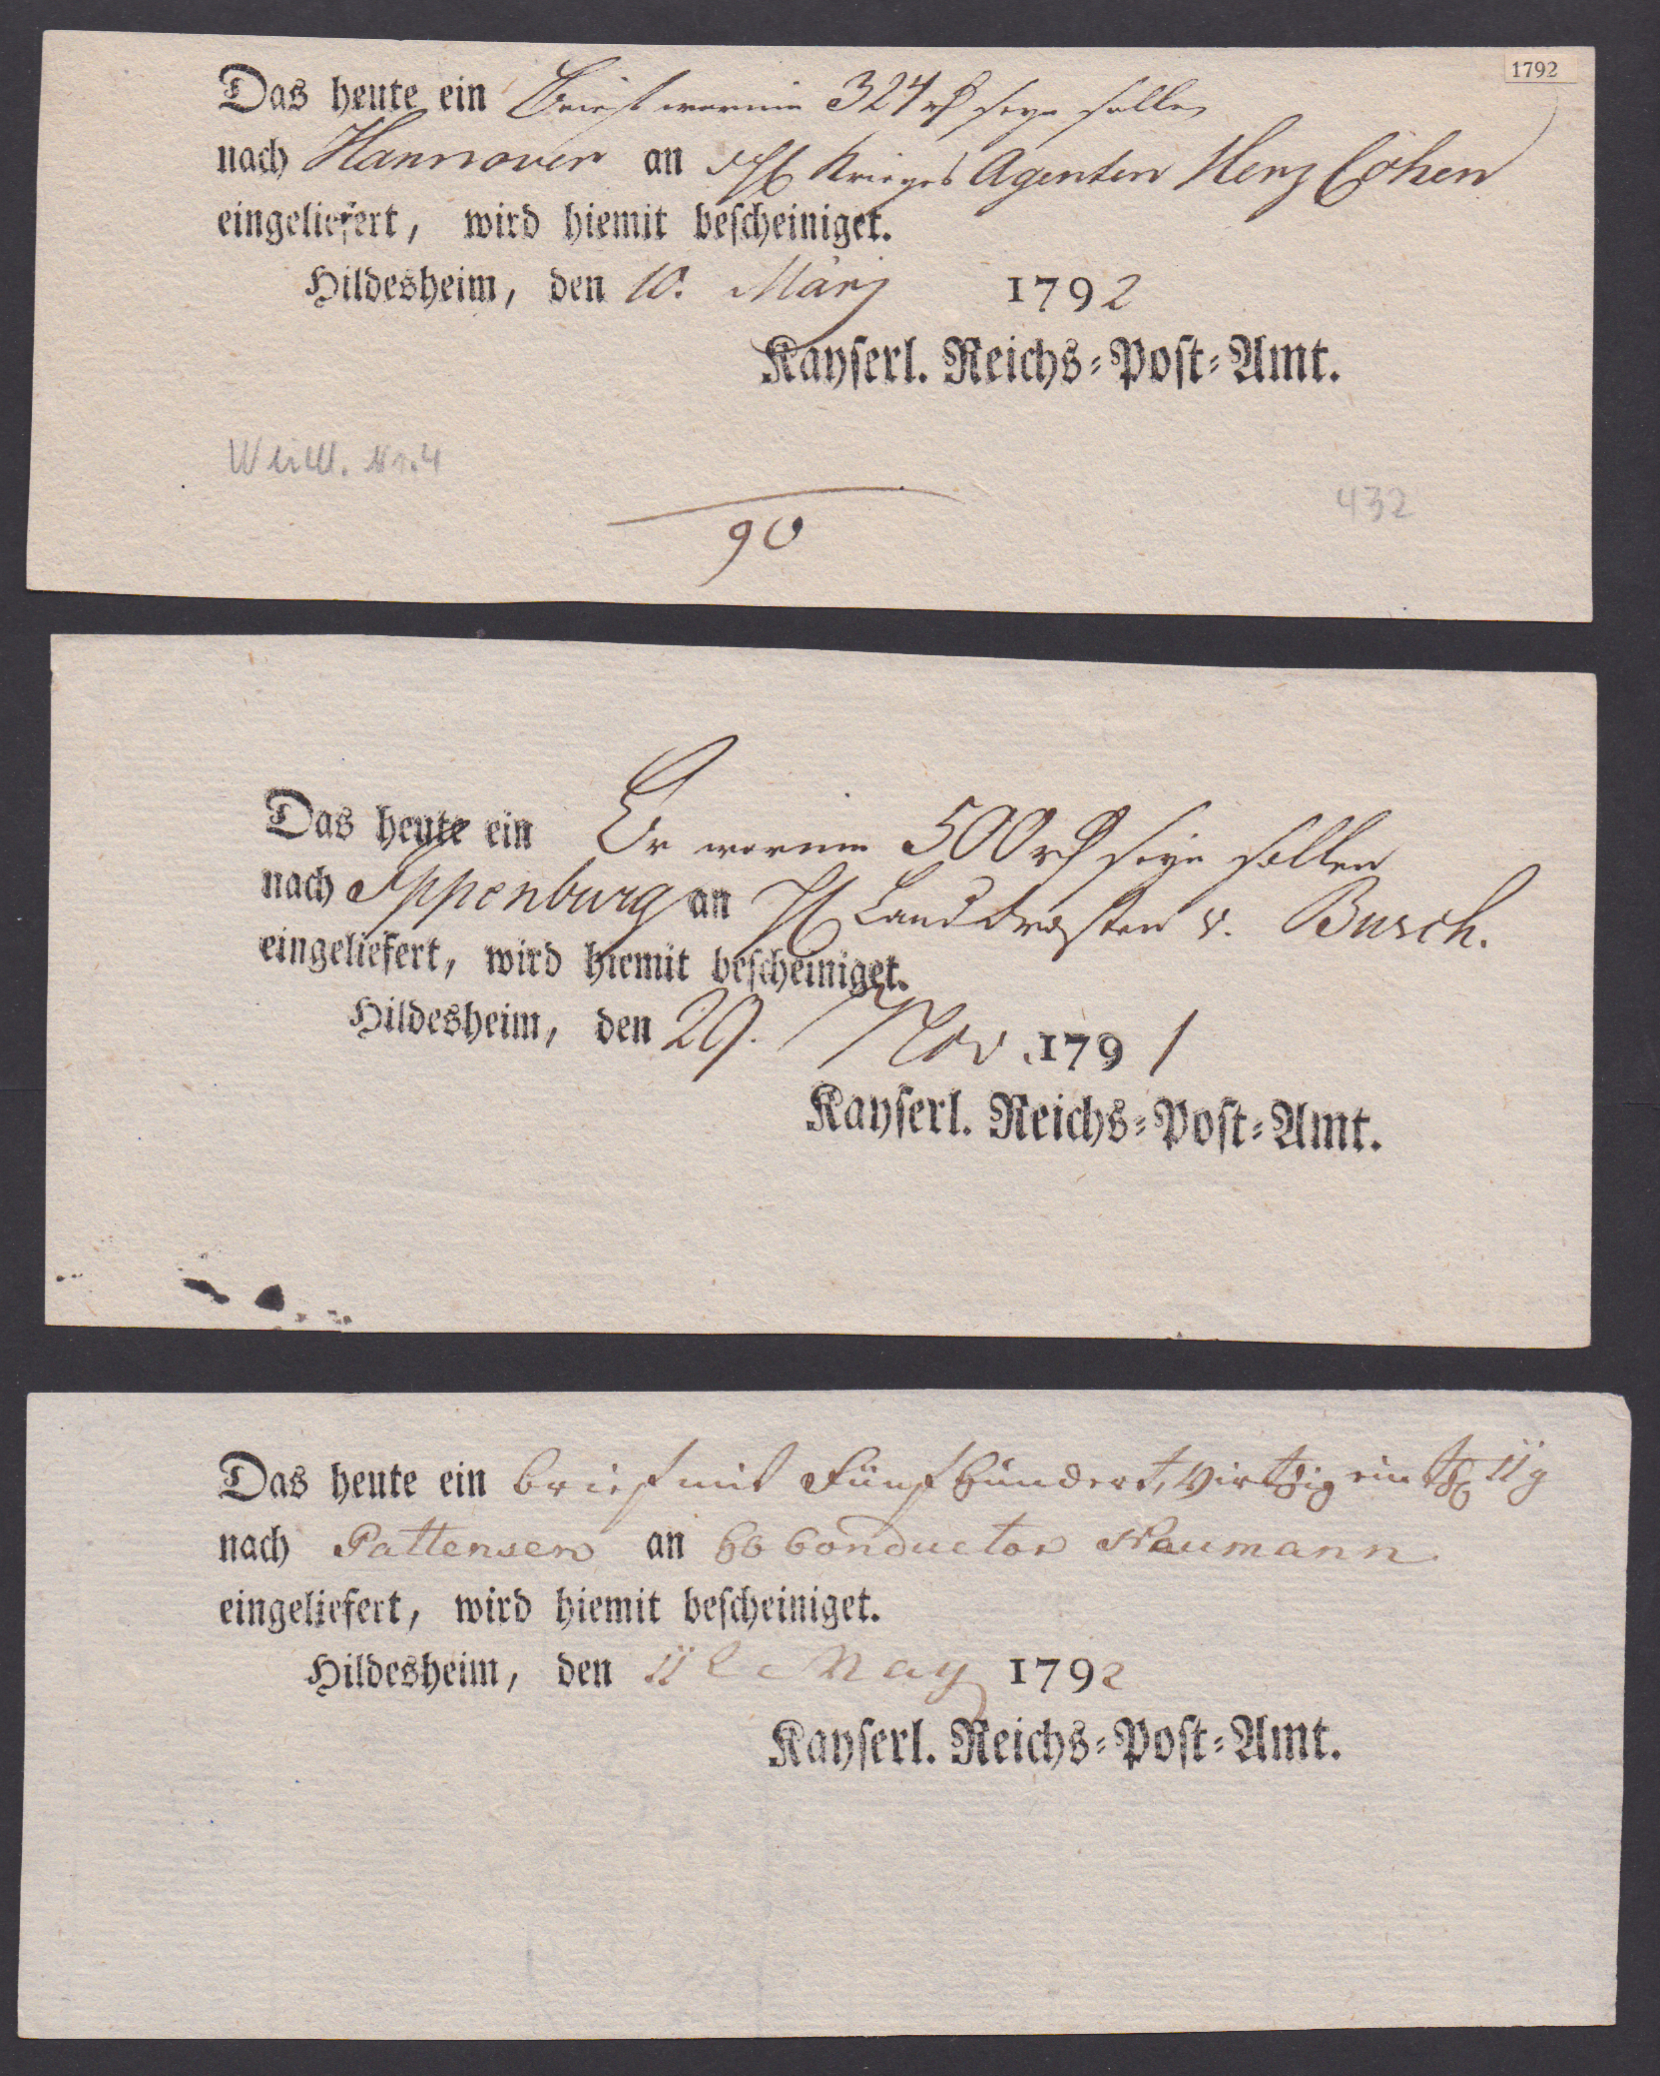 1792
Das heute ein Brief worin 324 rh seyn sollen
nach Hannover an Krieges Agenten Herz Cohen
eingeliefert, wird hiemit bescheiniget.
Hildesheim, den 10. März 1792
Kayserl. Reichs=Post=Amt.
Nr. 4
432
90
Das heute ein Br worin 500 rh seyn sollen
nach Ippenburg an H Landdrosten v. Busch.
eingeliefert, wird hiemit bescheiniget.
Hildesheim, den 29. Nov. 1791
Kayserl. Reichs=Post=Amt.
Das heute ein brief mit Fünfhundert, virtzig ein 11 g
nach Pattensen an Conductor Naumann
eingeliefert, wird hiemit bescheiniget.
Hildesheim, den 11 May 1792
Kayserl. Reichs=Post=Amt.